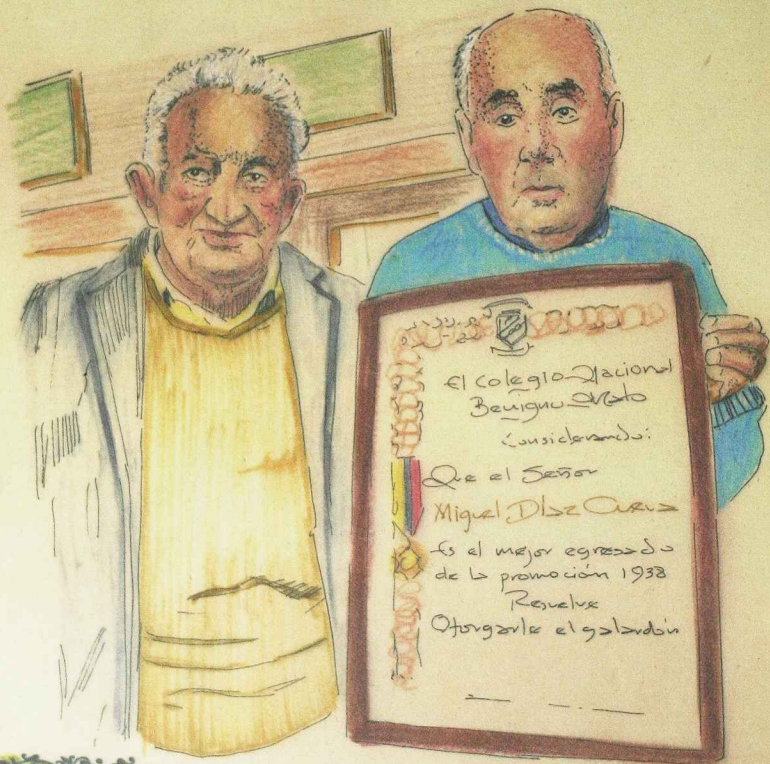 El Colegio Nacional
Benigno Malo
Considerando:
Que el Señor
Miguel Díaz Cueva
Es el mejor egresado
de la promoción 1938
Resuelve
Otorgarle el galardón